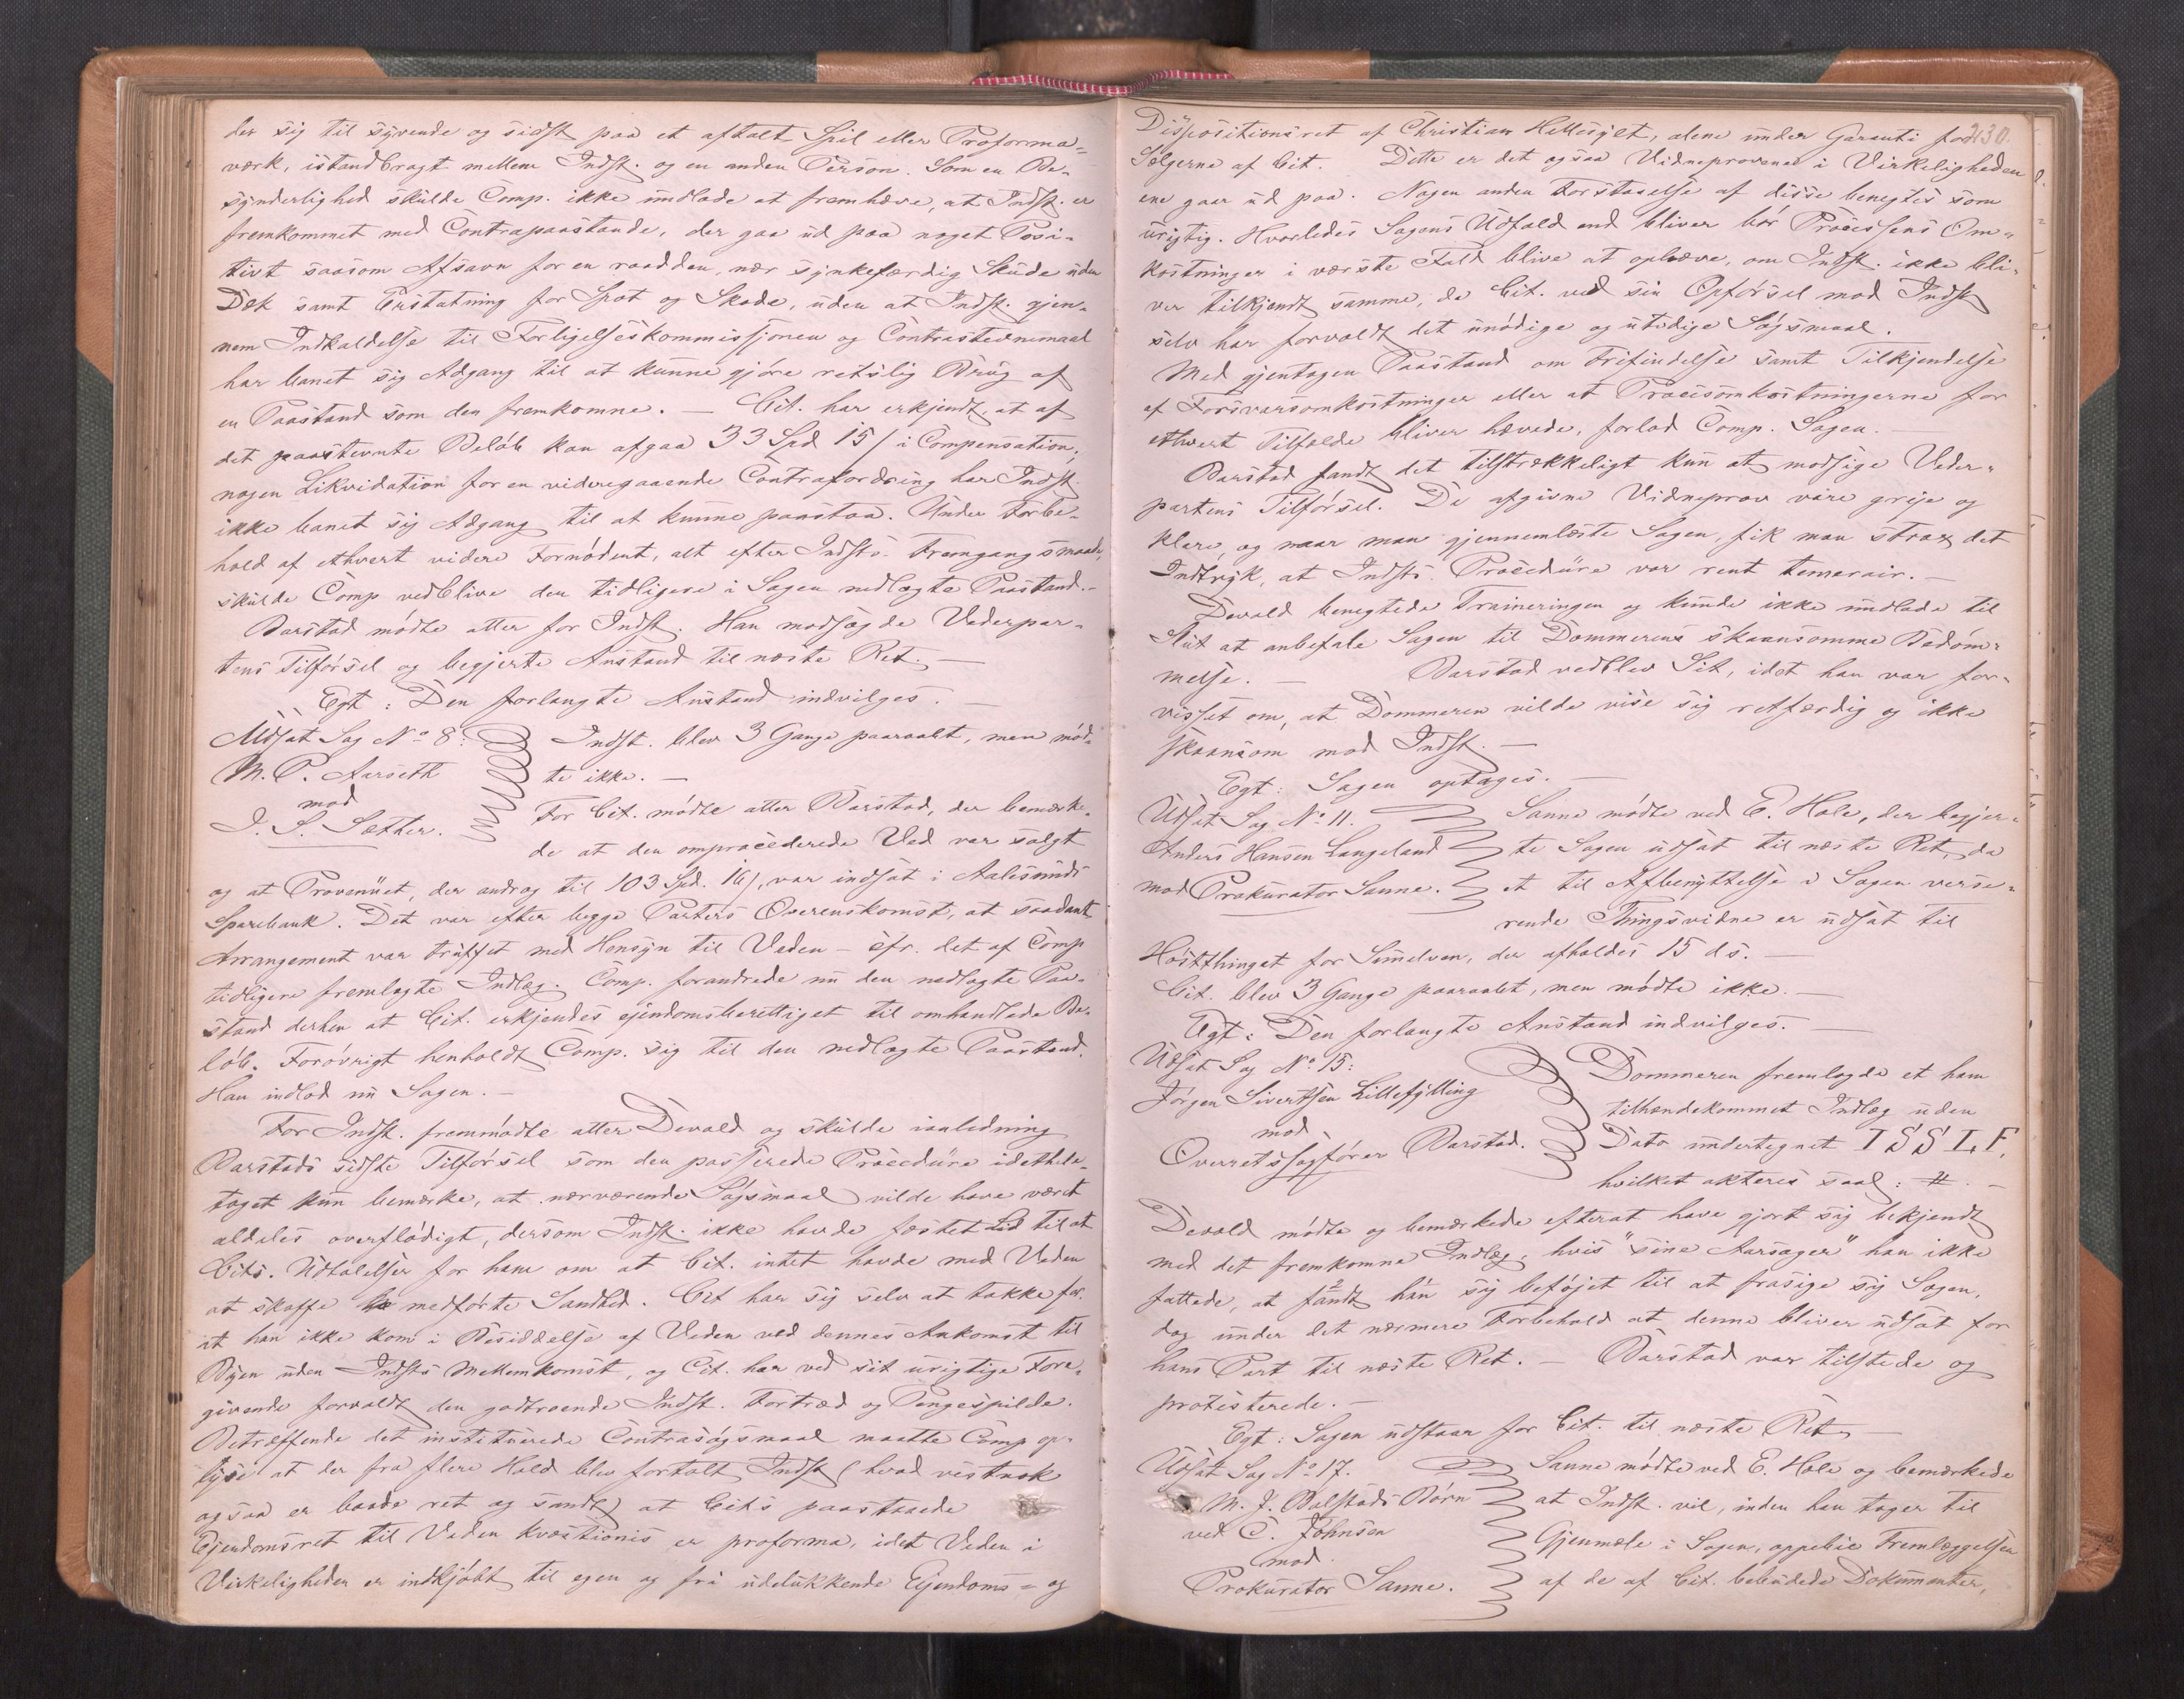 der sig til syvende og sidst paa et aftalt Spil eller Proforma-
værk, istandbragt mellem Indst. og en anden Person. Som en Be-
synderlighed skulde Comp. ikke undlade at fremhæve, at Indst. er
fremkommet med Contrapaastande, der gaa ud paa noget Posi-
tivt saasom Afsavn for en raadden, nær synkefærdig Skude uden
Dæk samt Erstatning for Spot og Skade, uden at Indst. gjen-
nem Indkaldelse til Forligelseskommissjonen og Contrastevnemaal
har banet sig Adgang til at kunne gjøre retslig Brug af
en Paastand som den fremkomne. — Cit. har erkjendt, at af
det paastevnte Beløb kan afgaa 33 Spd 15 / i Compensation,
nogen Likvidation for en videregaaende Contrafordring har Indst.
ikke banet sig Adgang til at kunne paastaa. Under Forbe-
hold af ethvert videre Fornødent, alt efter Indsts. Fremgangsmaade,
skulde Comp vedblive den tidligere i Sagen nedlagte Paastand. -
Barstad mødte atter for Indst. Han modsagde Vederpar-
tens Tilførsel og begjerte Anstand til næste Ret. —
Egt: Den forlangte Anstand indvilges. —
Udsat Sag No 8: Indst. blev 3 Gange paaraabt, men mød-
M. P. Aarseth te ikke. —
mod For Cit. mødte atter Barstad, der bemærke-
I. S. Sæther. de at den omprocederede Ved var solgt
og at Provenuet, der androg til 103 Spd. 16 /, var indsat i Aalesunds
Sparebank. Det var efter begge Parters Overenskomst, at saadant
Arrangement var truffet med Hensyn til Veden - cfr. det af Comp
tidligere fremlagte Indlæg. Comp. forandrede nu den nedlagte Paa-
stand derhen at Cit. erkjendes ejendomsberettiget til omhandlede Be-
løb. Forøvrigt henholdt Comp. sig til den nedlagte Paastand.
Han indlod nu Sagen. -
For Indst. fremmødte atter Devold og skulde ianledning
Barstads sidste Tilførsel som den passerede Procedure idethele-
taget kun bemærke, at nærværende Søgsmaal vilde have været
aldeles overflødigt, dersom Indst. ikke havde fæstet Lid til at
Cits. Udtalelser for ham om at Cit. intet havde med Veden
at skaffe medførte Sandhed. Cit har sig selv at takke for,
at han ikke kom i Besiddelse af Veden ved dennes Ankomst til
Byen uden Indsts Mellemkomst, og Cit. har ved sit urigtige Fore-
givende forvoldt den godtroende Indst. Fortræd og Pengespilde.
Betræffende det instituerede Contrasøgsmaal maatte Comp op-
lyse at der fra flere Hold blev fortalt Indst (hvad vistnok
ogsaa er baade ret og sandt) at Cits paastaaede
Ejendomsret til Veden kvæstionis er proforma, idet Veden i
Virkeligheden er indkjøbt til egen og fri udelukkende Ejendoms- og
230.
Dispositionsret af Christian Hellesylt, alene under Garanti for
Sælgerne af Cit. Dette er det ogsaa Vidneprovene i Virkeligheden
ene gaar ud paa. Nogen anden Forstaaelse af disse benegtes som
urigtig. Hvorledes Sagens Udfald end bliver bør Processens Om-
kostninger i værste Fald blive at ophæve, om Indst. ikke bli-
ver tilkjendt samme, da Cit. ved sin Opførsel mod Indst
selv har forvoldt det unødige og utidige Søgsmaal.
Med gjentagen Paastand om Frifindelse samt Tilkjendelse
af Forsvarsomkostninger eller at Procesomkostningerne for
ethvert Tilfælde bliver hævede, forlod Comp. Sagen. —
Barstad fandt det tilstrækkeligt kun at modsige Veder-
partens Tilførsel. De afgivne Vidneprov vare greje og
klare, og naar man gjennemlæste Sagen, fik man strax det
Indtryk, at Indsts. Procedure var rent temerair. —
Devold benegtede Traineringen og kunde ikke undlade til
Slut at anbefale Sagen til Dommerens skaansomme Bedøm-
melse. — Barstad vedblev Sit, idet han var for-
visset om, at Dommeren vilde vise sig retfærdig og ikke
skaansom mod Indst. —
Egt: Sagen optages. —
Udsat Sag No 11. Sanne mødte ved E. Hole, der begjer-
Anders Hansen Langeland te Sagen udsat til næste Ret, da
mod Prokurator Sanne. et til Afbenyttelse i Sagen verse-
rende Thingsvidne er udsat til
Høstthinget for Sunelven, der afholdes 15 ds. —
Cit. blev 3 Gange paaraabt, men mødte ikke. —
Egt: Den forlangte Anstand indvilges. —
Udsat Sag No 15: Dommeren fremlagde et ham
Jørgen Sivertsen Lillefylling tilhændekommet Indlæg uden
mod Dato undertegnet I S S L F,
Overretssagfører Barstad. hvilket akteres saal: #. -
Devold mødte og bemærkede efterat have gjort sig bekjendt
med det fremkomne Indlæg, hvis "sine Aarsager" han ikke
fattede, at fandt han sig beføjet til at frasige sig Sagen,
dog under det nærmere Forbehold at denne bliver udsat for
hans Part til næste Ret. — Barstad var tilstede og
protesterede. —
Egt: Sagen udstaar for Cit. til næste Ret —
Udsat Sag No 17. Sanne mødte ved E. Hole og bemærkede
M. J. Balstads Børn at Indst. vil, inden han tager til
ved C. Johnsen Gjenmæle i Sagen, oppebie Fremlæggelsen
mod af de af Cit. bebudede Dokumenter,
Prokurator Sanne.